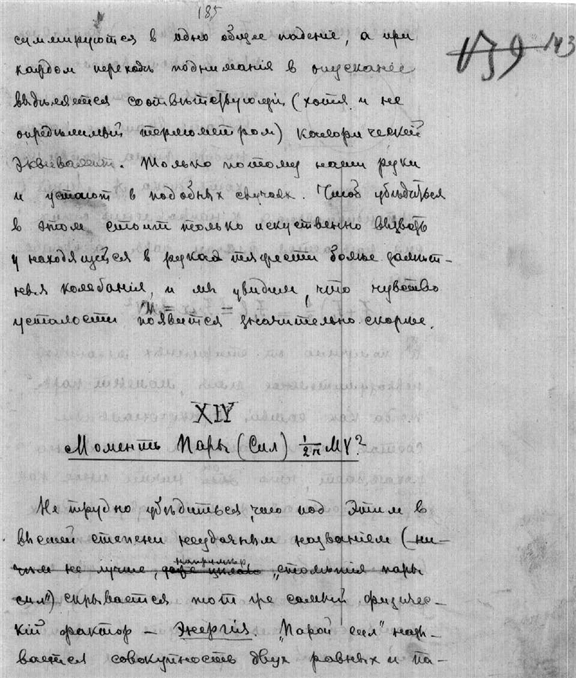 185
139 143
суммируются в одно общее падение, а при
каждом переходе поднимания в опускание
выдѣляется соотвѣтствующiй (хотя и не
опредѣлимый термометром) калорическiй
эквивалент. Только потому наши руки
и устают в подобных случаях. Чтоб убѣдиться
в этом стоит только искуственно вызвать
у находящейся в руках тяжести болѣе замѣт-
ныя колебания, и мы увидим, что чувство
усталости появится значительно скорѣе.
XIV
Моментъ Пары (Сил) 1/2π MV²
Не трудно убѣдиться, что под этим в
высшей степени неудачным названiем (ни-
чѣм не лучше, например, „столѣтия пары
сил") скрывается тот же самый физичес-
кiй фактор – Энергiя. „Парой сил" назы-
вается совокупность двух равных и па-